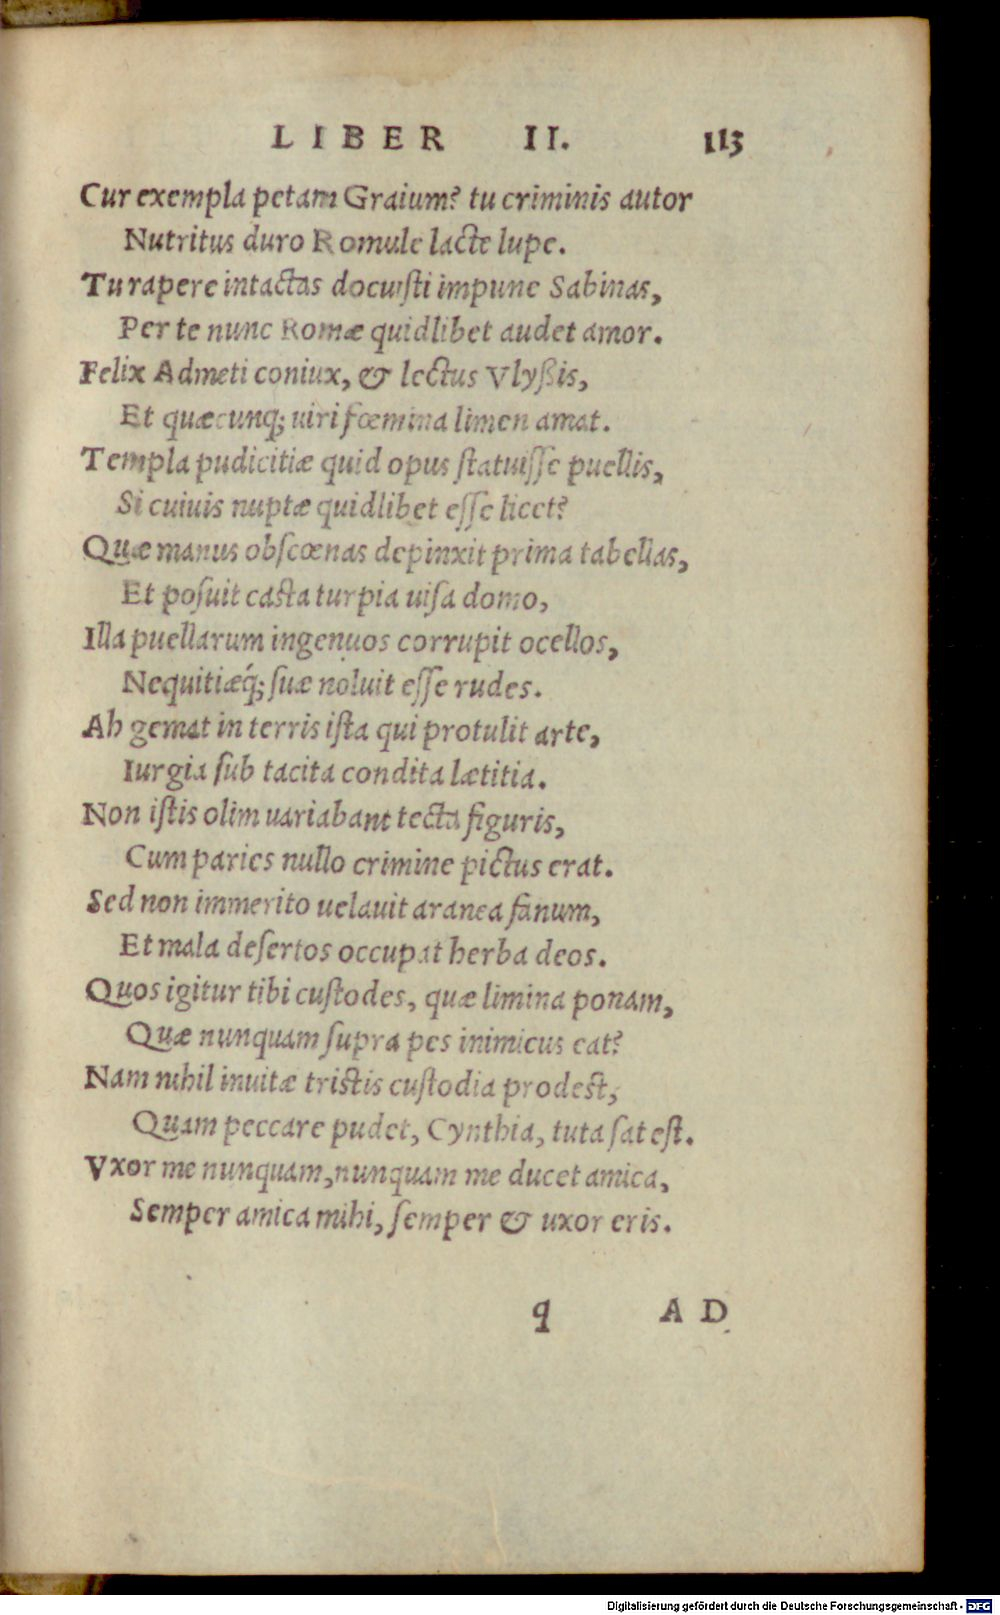 LIBER II. 113
Cur exempla petam Graium? tu criminis autor
Nutritus duro Romule lacte lupe.
Tu rapere intactas docuisti impune Sabinas,
Per te nunc Romæ quidlibet audet amor.
Felix Admeti coniux, & lectus Vlyßis,
Et quæcunq; uiri fœmina limen amat.
Templa pudicitiæ quid opus ſtatuiſſe puellis,
Si cuiuis nuptæ quidlibet eſſe licet?
Quæ manus obſcœnas depinxit prima tabellas,
Et poſuit casta turpia uiſa domo,
Illa puellarum ingenuos corrupit ocellos,
Nequitiæq́; ſuæ noluit eſſe rudes.
Ah gemat in terris iſta qui protulit arte,
Iurgia ſub tacita condita lætitia.
Non iſtis olim uariabant tecta figuris,
Cum paries nullo crimine pictus erat.
Sed non immerito uelauit aranea fanum,
Et mala deſertos occupat herba deos.
Quos igitur tibi cuſtodes, quæ limina ponam,
Quæ nunquam ſupra pes inimicus eat?
Nam nihil inuitæ tristis cuſtodia prodest,
Quam peccare pudet, Cynthia, tuta ſat eſt.
Vxor me nunquam, nunquam me ducet amica,
Semper amica mihi, ſemper & uxor eris.
q AD
Digitalisierung gefördert durch die Deutsche Forschungsgemeinschaft - DFG